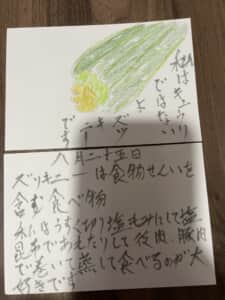 私はキュウリ
ではない
よ
ズッ
キーニ
です
八月二十五日
ズッキーニーは食物せんいを
含む食べ物
私はうすく切り塩もみにして塩
昆布であえたりして後肉、豚肉
で巻いて蒸して食べるのが大
好きです